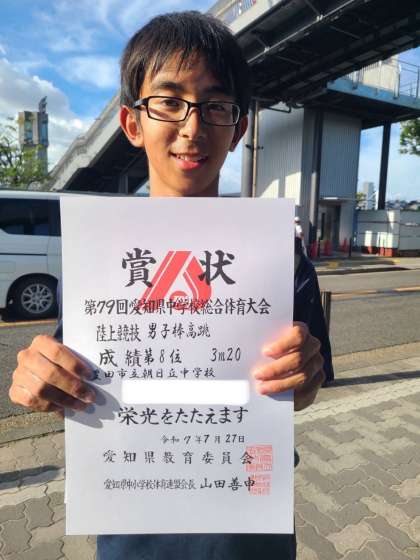 賞状
第79回愛知県中学校総合体育大会
陸上競技 男子棒高跳
成績第8位 3m20
豊田市立朝日丘中学校
栄光をたたえます
令和7年7月27日
愛知県教育委員会
愛知県中小学校体育連盟会長 山田善申